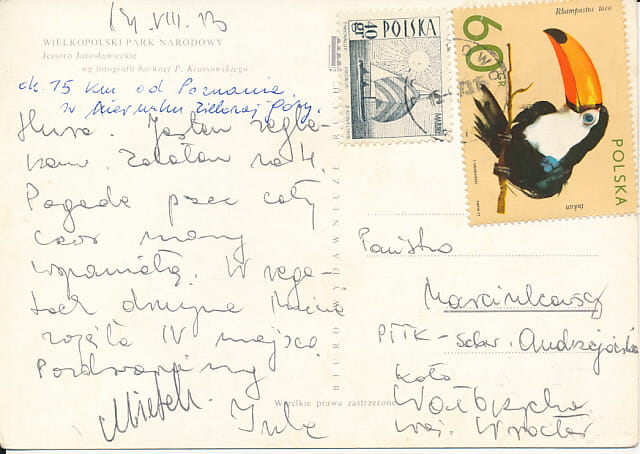 14.VIII.73
WIELKOPOLSKI PARK NARODOWY
Jezioro Jarosławieckie
wg fotografii barwnej P. Krassowskiego
ok. 15 km od Poznania
w kierunku Zielonej Góry.
Hura. Jestem żegla-
rzem. Zdałam na 4.
Pogodę przez cały
czas mamy
wspaniałą. W rega-
tach drużyna
zajęła IV miejsce.
Pozdrawiamy
BIURO WYDAWNICZE RUCH
Wszelkie prawa zastrzeżone
40 gr
POLSKA
60 GR
Rhampastos toco
POLSKA
tukan
Państwo
Marcinkowscy
PTTK - Schr. Andrzejówka
koło
Wałbrzycha
woj. Wrocław